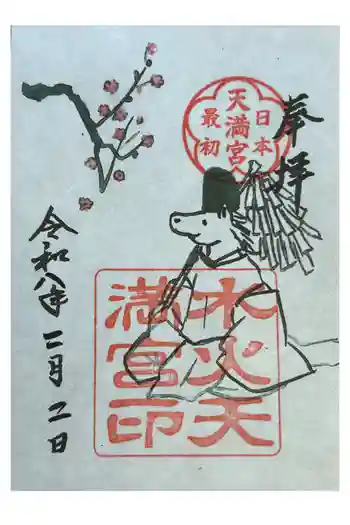 奉拝
日本
天満宮
最初
水火天
満宮印
令和八年二月二日